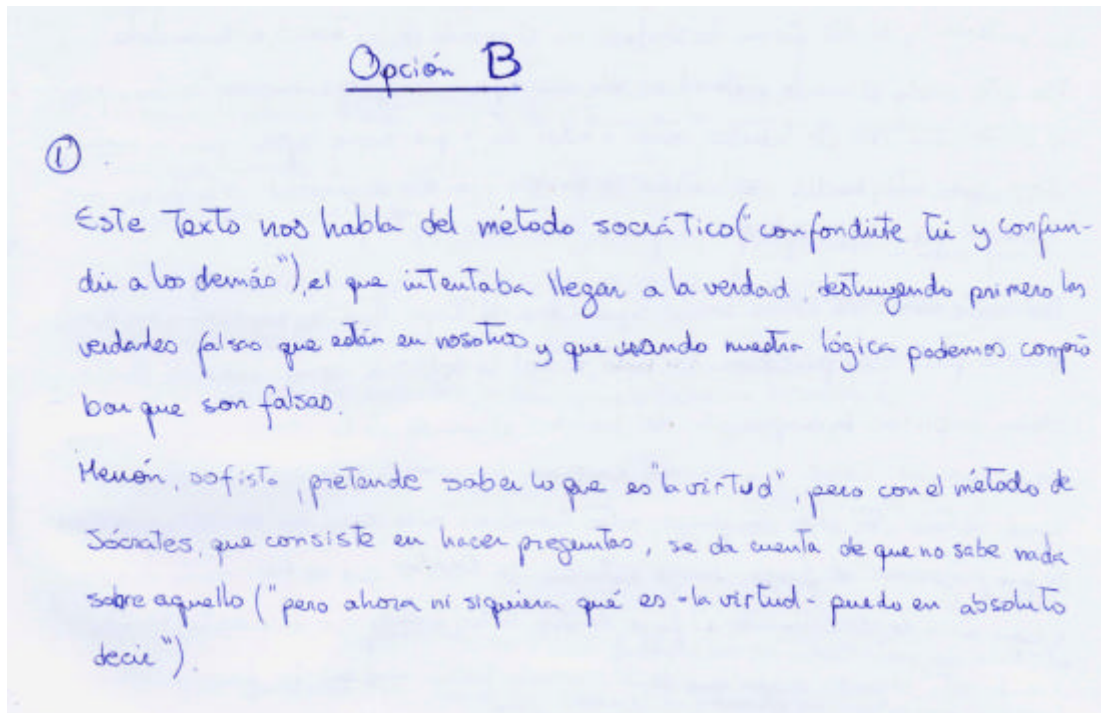 Opción B
①
Este texto nos habla del método socrático ("confundirte tú y confun-
dir a los demás"), el que intentaba llegar a la verdad, destruyendo primero las
verdades falsas que están en nosotros y que usando nuestra lógica podemos compro
bar que son falsas.
Menón, sofista, pretende saber lo que es "la virtud", pero con el método de
Sócrates, que consiste en hacer preguntas, se da cuenta de que no sabe nada
sobre aquello ("pero ahora ni siquiera qué es -la virtud- puedo en absoluto
decir").